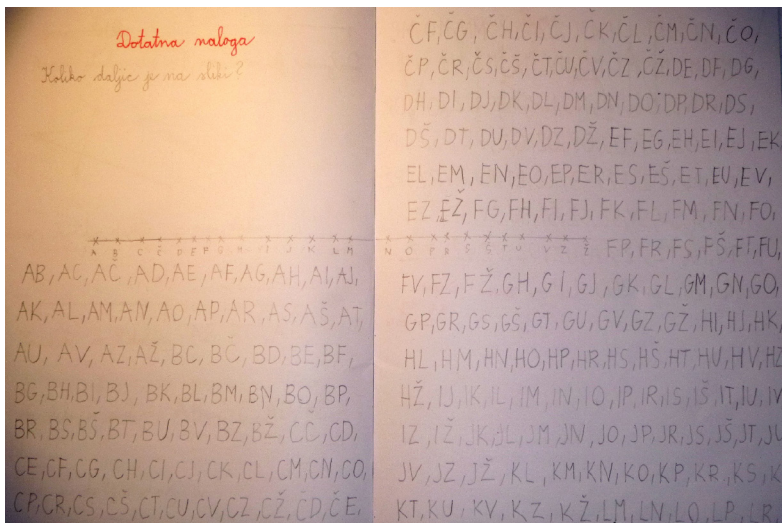 Dotatna naloga
Koliko daljic je na sliki?
A B C Č D E F G H I J K L M N O P R S Š T U V Z Ž
AB, AC, AČ, AD, AE, AF, AG, AH, AI, AJ,
AK, AL, AM, AN, AO, AP, AR, AS, AŠ, AT,
AU, AV, AZ, AŽ, BC, BČ, BD, BE, BF,
BG, BH, BI, BJ, BK, BL, BM, BN, BO, BP,
BR, BS, BŠ, BT, BU, BV, BZ, BŽ, CČ, CD,
CE, CF, CG, CH, CI, CJ, CK, CL, CM, CN, CO,
CP, CR, CS, CŠ, CT, CU, CV, CZ, CŽ, ČD, ČE,
ČF, ČG, ČH, ČI, ČJ, ČK, ČL, ČM, ČN, ČO,
ČP, ČR, ČS, ČŠ, ČT, ČU, ČV, ČZ, ČŽ, DE, DF, DG,
DH, DI, DJ, DK, DL, DM, DN, DO, DP, DR, DS,
DŠ, DT, DU, DV, DZ, DŽ, EF, EG, EH, EI, EJ, EK
EL, EM, EN, EO, EP, ER, ES, EŠ, ET, EU, EV,
EZ, EŽ, FG, FH, FI, FJ, FK, FL, FM, FN, FO,
FP, FR, FS, FŠ, FT, FU,
FV, FZ, FŽ, GH, GI, GJ, GK, GL, GM, GN, GO,
GP, GR, GS, GŠ, GT, GU, GV, GZ, GŽ, HI, HJ, HK,
HL, HM, HN, HO, HP, HR, HS, HŠ, HT, HU, HV, HZ
HŽ, IJ, IK, IL, IM, IN, IO, IP, IR, IS, IŠ, IT, IU, IV
IZ, IŽ, JK, JL, JM, JN, JO, JP, JR, JS, JŠ, JT, JU
JV, JZ, JŽ, KL, KM, KN, KO, KP, KR, KS, K
KT, KU, KV, KZ, KŽ, LM, LN, LO, LP, LR